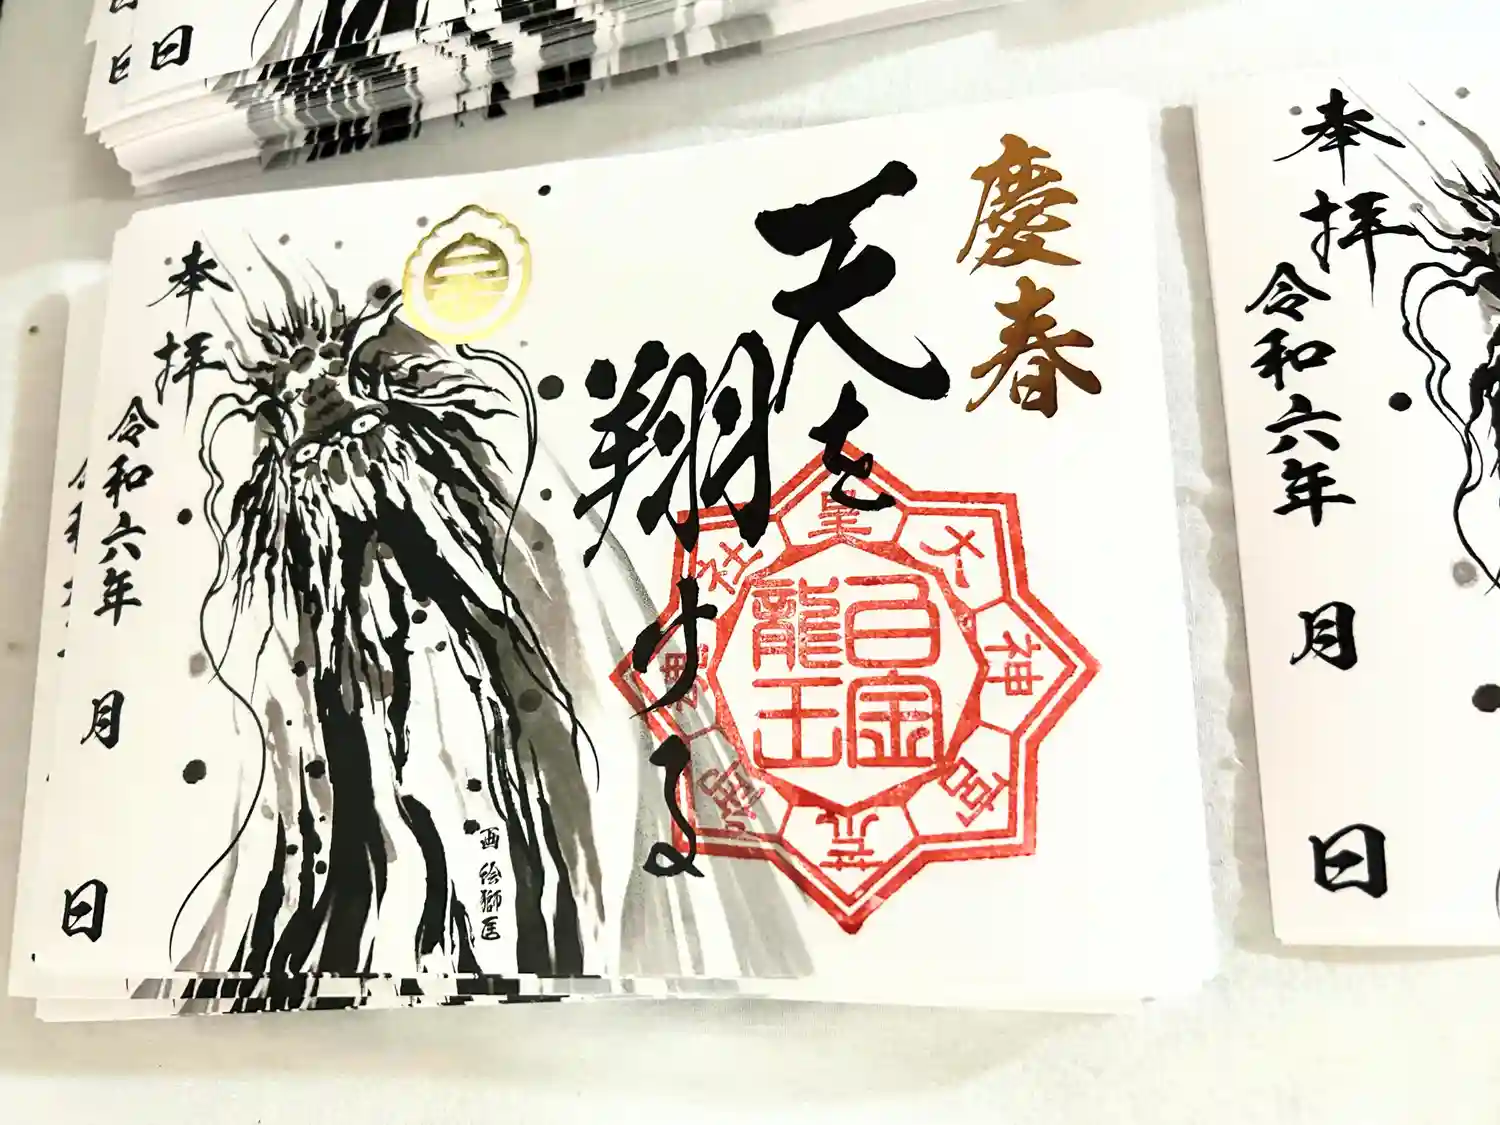 慶春
天を
翔ける
奉拝
令和六年 月 日
画 絵獅匡
白金
龍王
大神宮
奉拝
令和六年 月 日
日
日